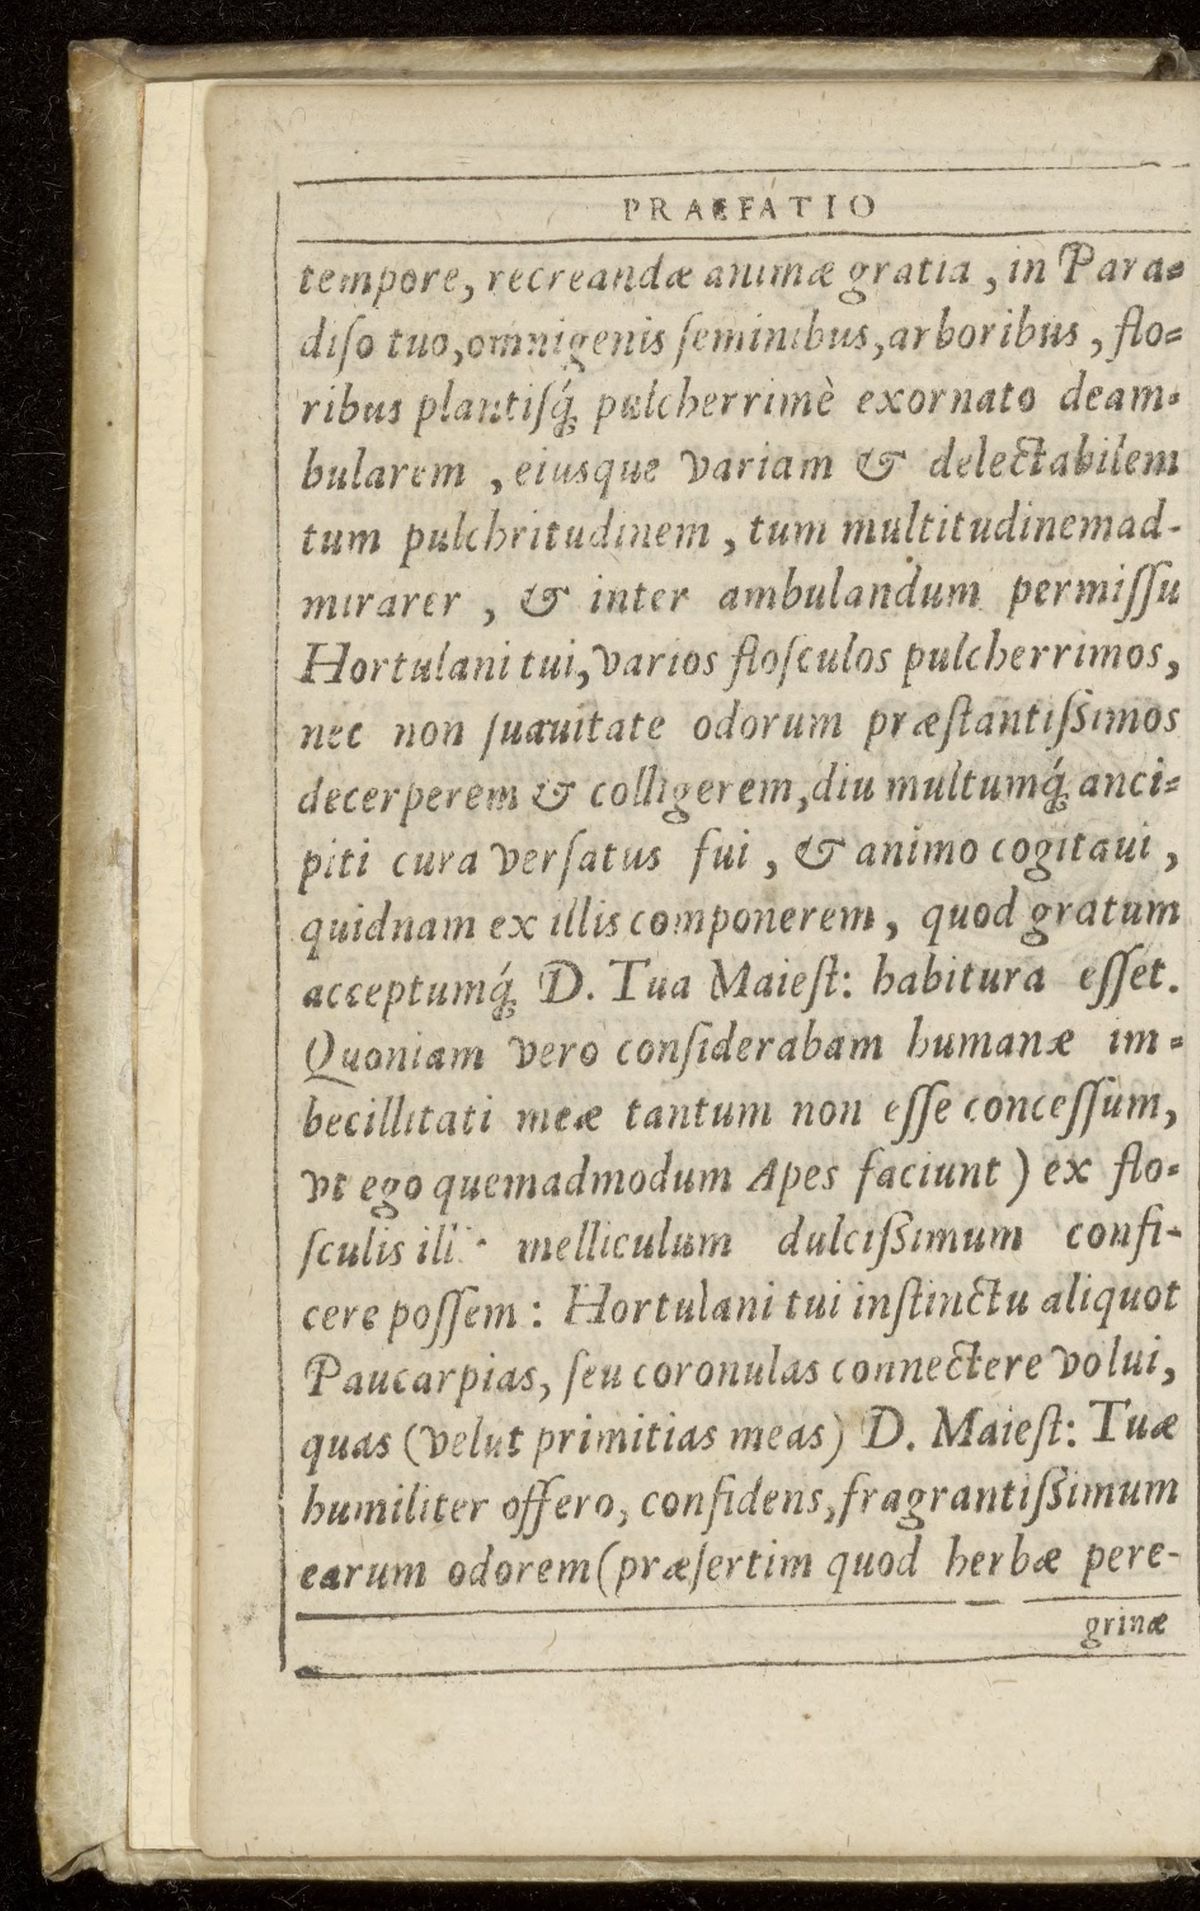 PRAEFATIO
tempore, recreandæ animæ gratia, in Para-
diſo tuo, omnigenis ſeminibus, arboribus, flo-
ribus plantiſq́; pulcherrimè exornato deam-
bularem, eiusque variam & delectabilem
tum pulchritudinem, tum multitudinemad-
mirarer, & inter ambulandum permiſſu
Hortulani tui, varios floſculos pulcherrimos,
nec non ſuauitate odorum præſtantiſſimos
decerperem & colligerem, diu multumq́; anci-
piti cura verſatus fui, & animo cogitaui,
quidnam ex illis componerem, quod gratum
acceptumq́; D. Tua Maieſt: habitura eſſet.
Quoniam vero conſiderabam humanæ im-
becillitati meæ tantum non eſſe conceſſum,
vt ego quemadmodum Apes faciunt) ex flo-
ſculis melliculum dulciſſimum confi-
cere poſſem: Hortulani tui inſtinctu aliquot
Paucarpias, ſeu coronulas connectere volui,
quas (velut primitias meas) D. Maieſt: Tuæ
humiliter offero, confidens, fragrantiſſimum
earum odorem (præſertim quod herbæ pere-
grinæ